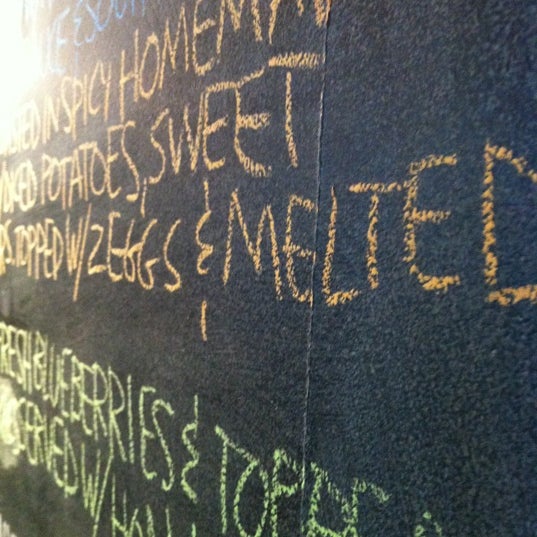 & SOU
IN SPICY HOMEMA
POTATOES, SWEET
TOPPED W/ 2 EGGS & MELTED
FRESH BLUEBERRIES & TOFF
SERVED W/ HOU